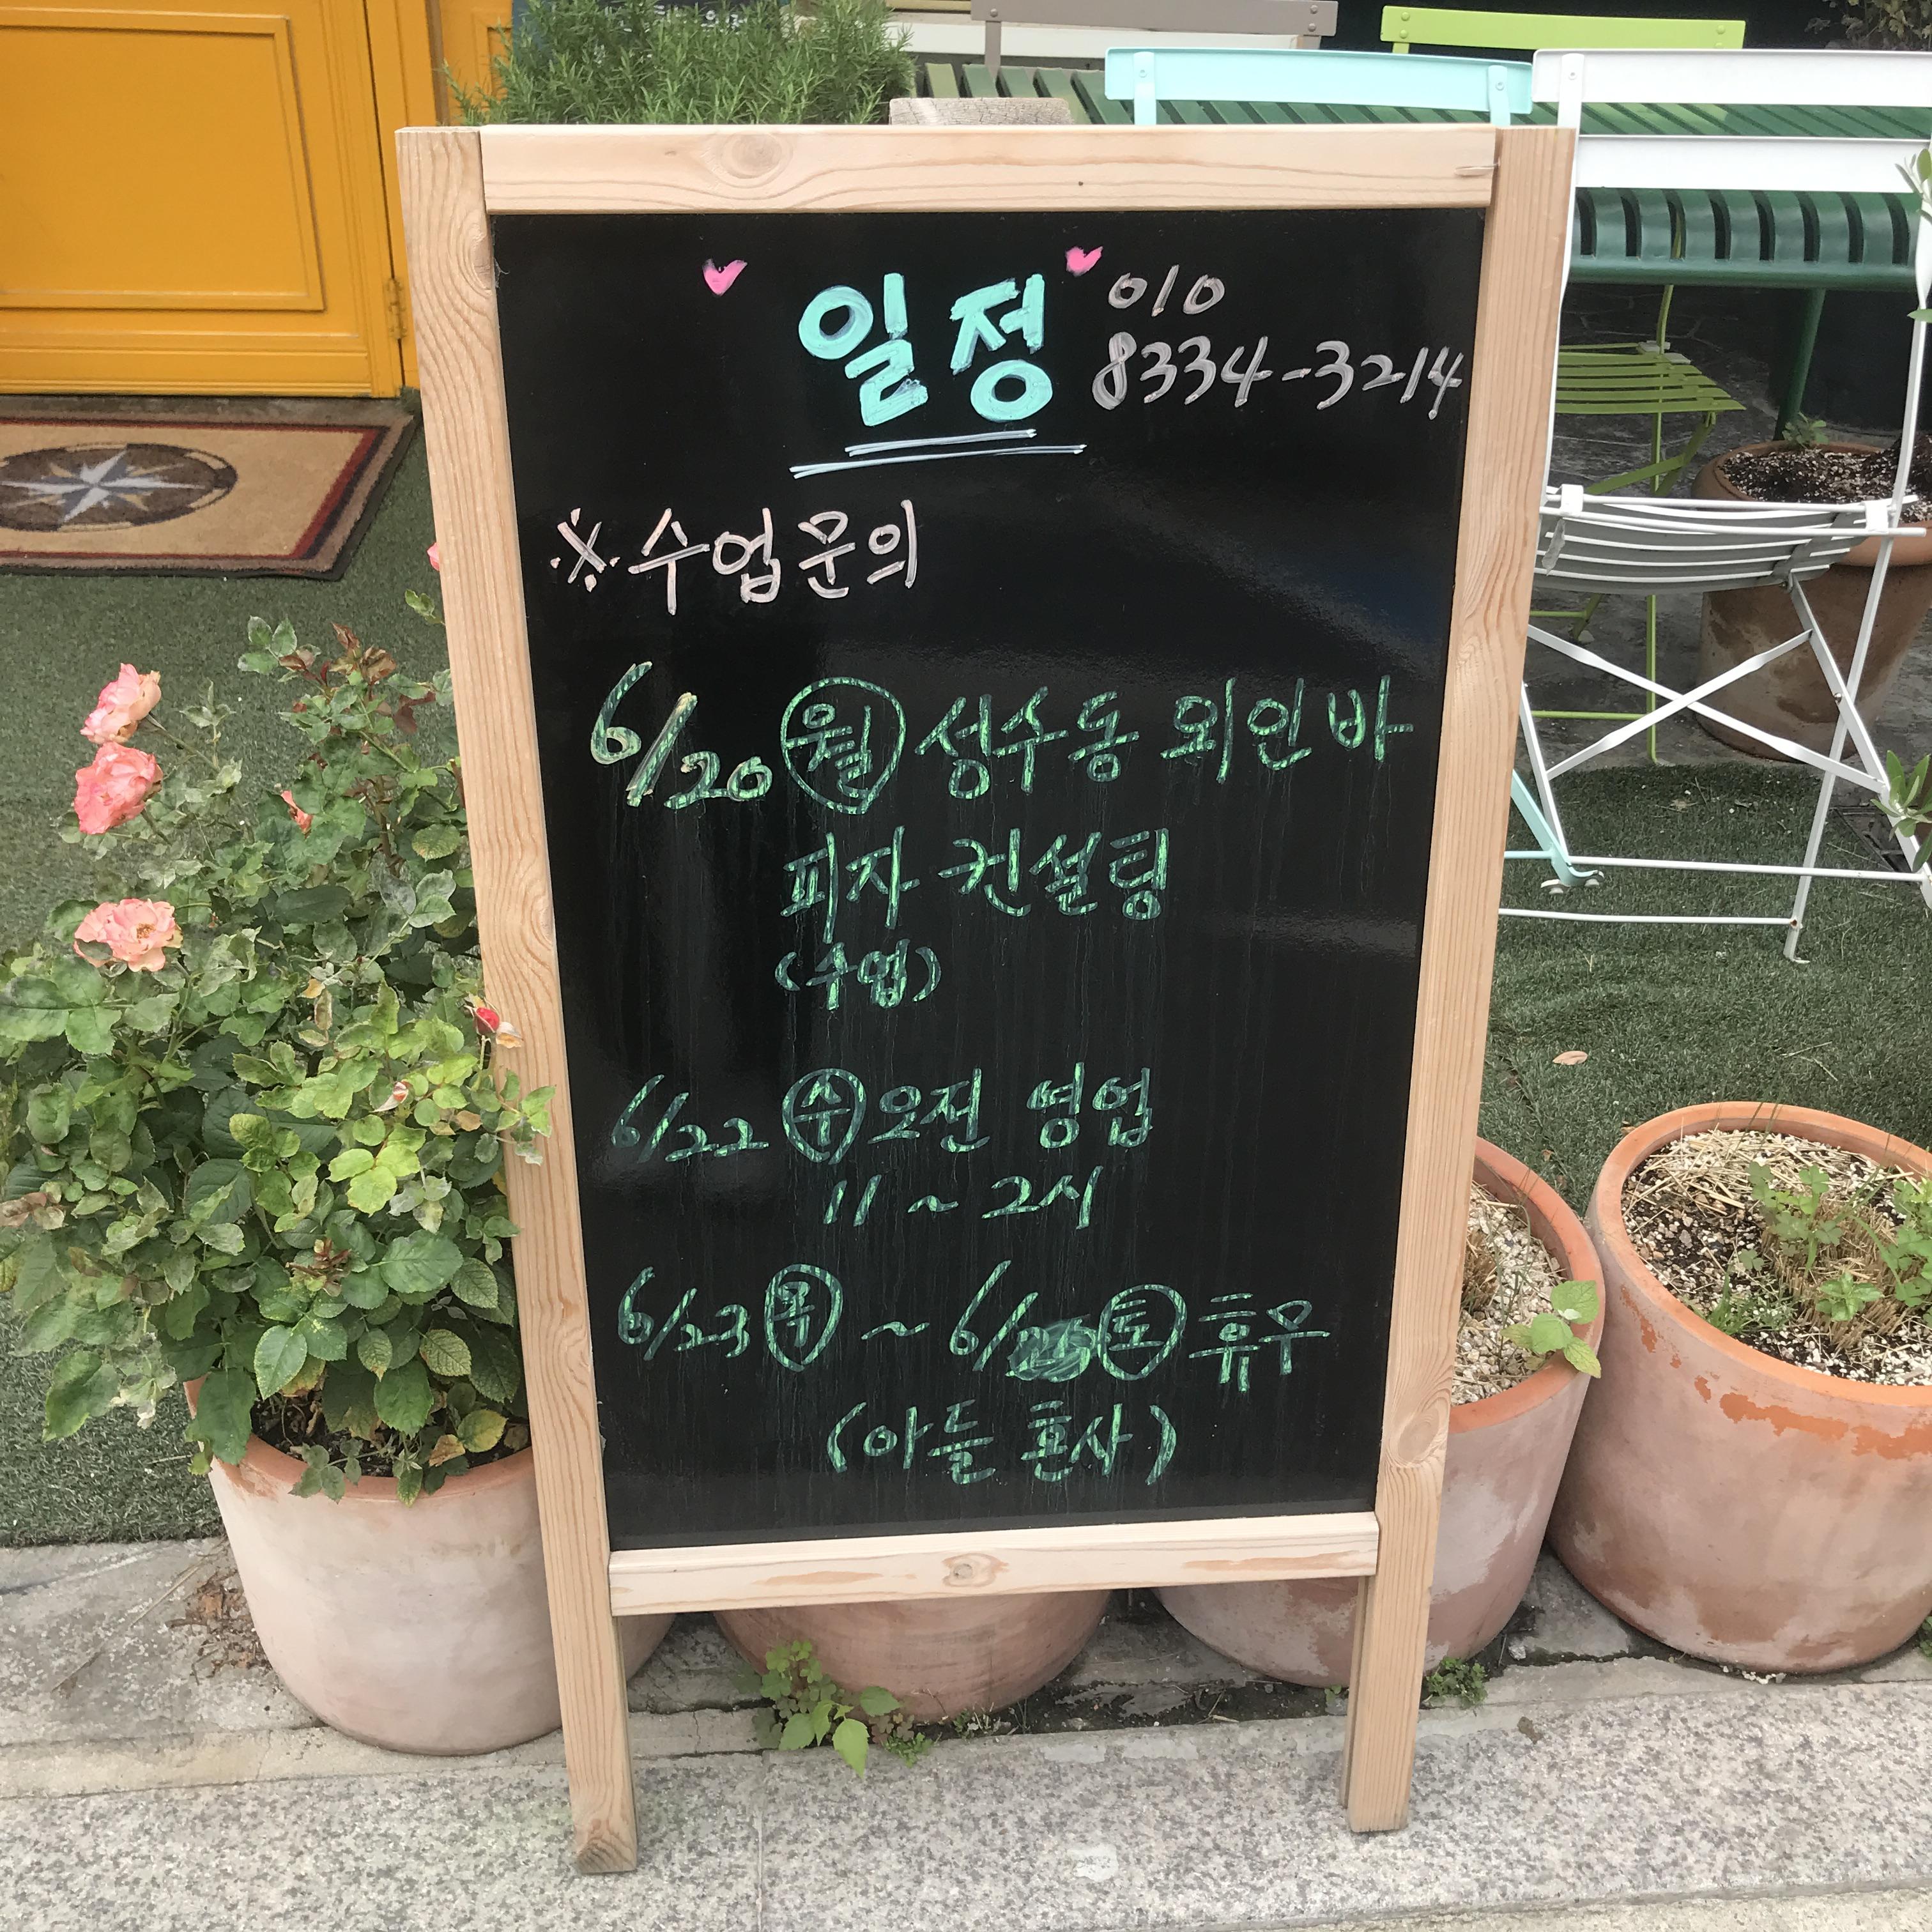 일정
010
8334-3214
※수업문의
6/20 월 성수동 외인바
피자 컨설팅
(수업)
6/22 수 오전 영업
11 ~ 2시
6/23 목 ~ 6/25 토 휴무
(아들 혼사)